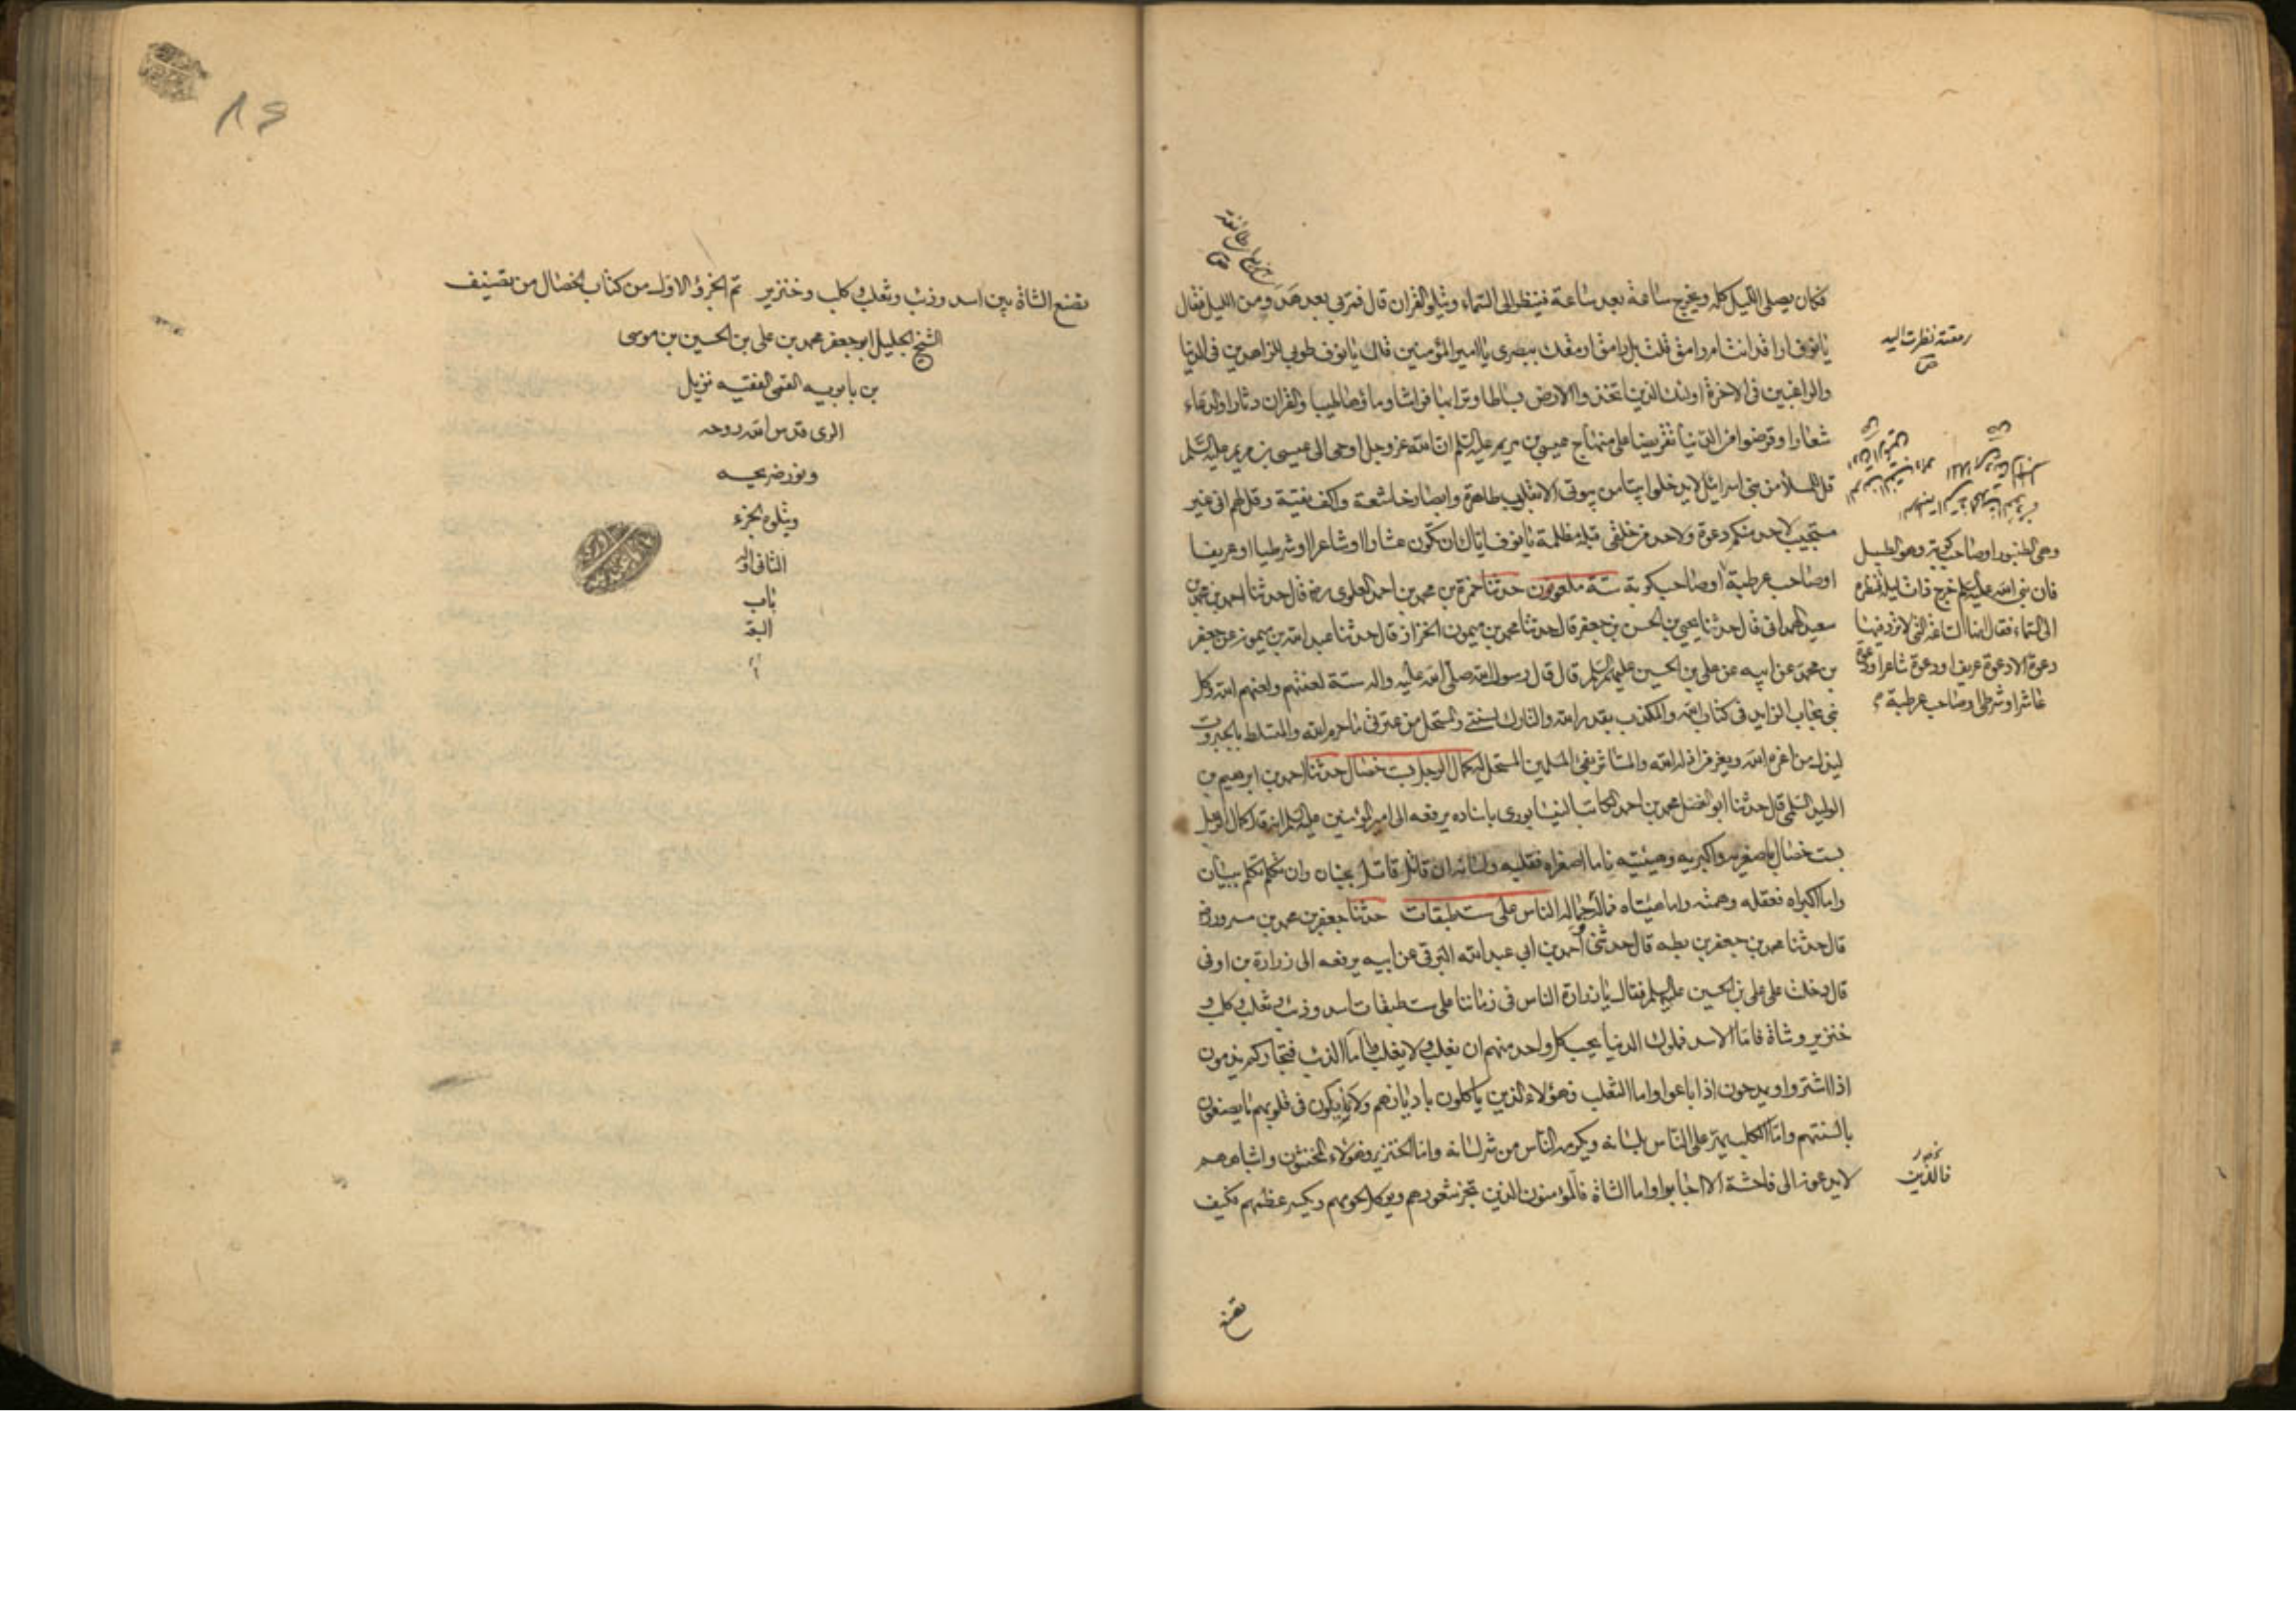 فكان يصلى الليل كله ويخرج ساعة بعد ساعة فينظر الى السماء ويتلو القران قال فمر بى بعد هدء ومن الليل فقال
يا نوف اراقد انت ام رامق قلت بل رامق ارمقك ببصرى يا امير المؤمنين قال يا نوف طوبى للزاهدين فى الدنيا
والراغبين فى الاخرة اولئك الذين اتخذوا الارض بساطا وترابها فراشا وماؤها طيبا والقران دثارا والدعاء
شعارا وقرضوا من الدنيا تقريضا على منهاج عيسى بن مريم عليه السلم ان الله عز وجل اوحى الى عيسى بن مريم عليه السلم
قل للملأ من بنى اسرائيل لا يدخلوا بيتا من بيوتى الا بقلوب طاهرة وابصار خاشعة واكف نقية وقل لهم انى غير
مستجيب لاحد منكم دعوة ولاحد من خلقى قبله مظلمة يا نوف اياك ان تكون عشارا او شاعرا او شرطيا او عريفا
او صاحب عرطبة او صاحب كوبة ستة ملعونون حدثنا حمزة بن محمد بن احمد العلوى رض قال حدثنا احمد بن محمد بن
سعيد الهمدانى قال حدثنا يحيى بن الحسن بن جعفر قال حدثنا محمد بن ميمون الخزاز قال حدثنا عبد الله بن ميمون عن جعفر
بن محمد عن ابيه عن على بن الحسين عليهم السلم قال قال رسول الله صلى الله عليه واله ستة لعنهم ولعنهم الله وكل
نبى مجاب الزايد فى كتاب الله والمكذب بقدر الله والتارك لسنتى والمستحل من عترتى ما حرم الله والمتسلط بالجبروت
ليذل من اعزه الله ويعز من اذله الله والمستاثر بفئ المسلمين المستحل له كمال الرجل بست خصال حدثنا احمد بن ابرهيم بن
الوليد السلمى قال حدثنا ابو الفضل محمد بن احمد الكاتب النيسابورى باسناده يرفعه الى امير المؤمنين عليه السلم انه قال كمال الرجل
بست خصال باصغريه واكبريه وهيئتيه فاما اصغراه فقلبه ولسانه ان قاتل قاتل بجنان وان تكلم تكلم ببيان
واما اكبراه فعقله وهمته واما هيئتاه فماله وجماله الناس على ست طبقات حدثنا جعفر بن محمد بن مسرور رض
قال حدثنا محمد بن جعفر بن بطه قال حدثنى احمد بن ابى عبد الله البرقى عن ابيه يرفعه الى زرارة بن اوفى
قال دخلت على على بن الحسين عليهما السلم فقال يا زرارة الناس فى زماننا على ست طبقات اسد وذئب وثعلب وكلب و
خنزير وشاة فاما الاسد فملوك الدنيا يحب كل واحد منهم ان يغلب ولا يغلب واما الذئب فتجاركم يذمون
اذا اشتروا ويمدحون اذا باعوا واما الثعلب فهؤلاء الذين ياكلون باديانهم ولا يكون فى قلوبهم ما يصفون
بالسنتهم واما الكلب يهر على الناس بلسانه ويكرمه الناس من شر لسانه واما الخنزير فهؤلاء المخنثون واشباههم
لا يدعون الى فاحشة الا اجابوا واما الشاة فالمؤمنون الذين تجز شعورهم ويوكل لحومهم ويكسر عظمهم فكيف
رمقته نظرت اليه
وهى الطنبور او صاحب كوبة وهو الطبل
فان نبى الله عليه السلم خرج ذات ليلة فنظر
الى السماء فقال انها الساعة التى لا ترد فيها
دعوة الا دعوة عريف او دعوة شاعر او دعوة
عاشر او شرطى او صاحب عرطبة
فالذين
تصنع
تصنع الشاة بين اسد وذئب وثعلب وكلب وخنزير تم الجزؤ الاول من كتاب الخصال من تصنيف
الشيخ الجليل ابو جعفر محمد بن على بن الحسين بن موسى
بن بابويه القمى الفقيه نزيل
الرى قدس الله روحه
ونور ضريحه
ويتلوه الجزء
الثانى اوله
باب
السبعة
٨٤